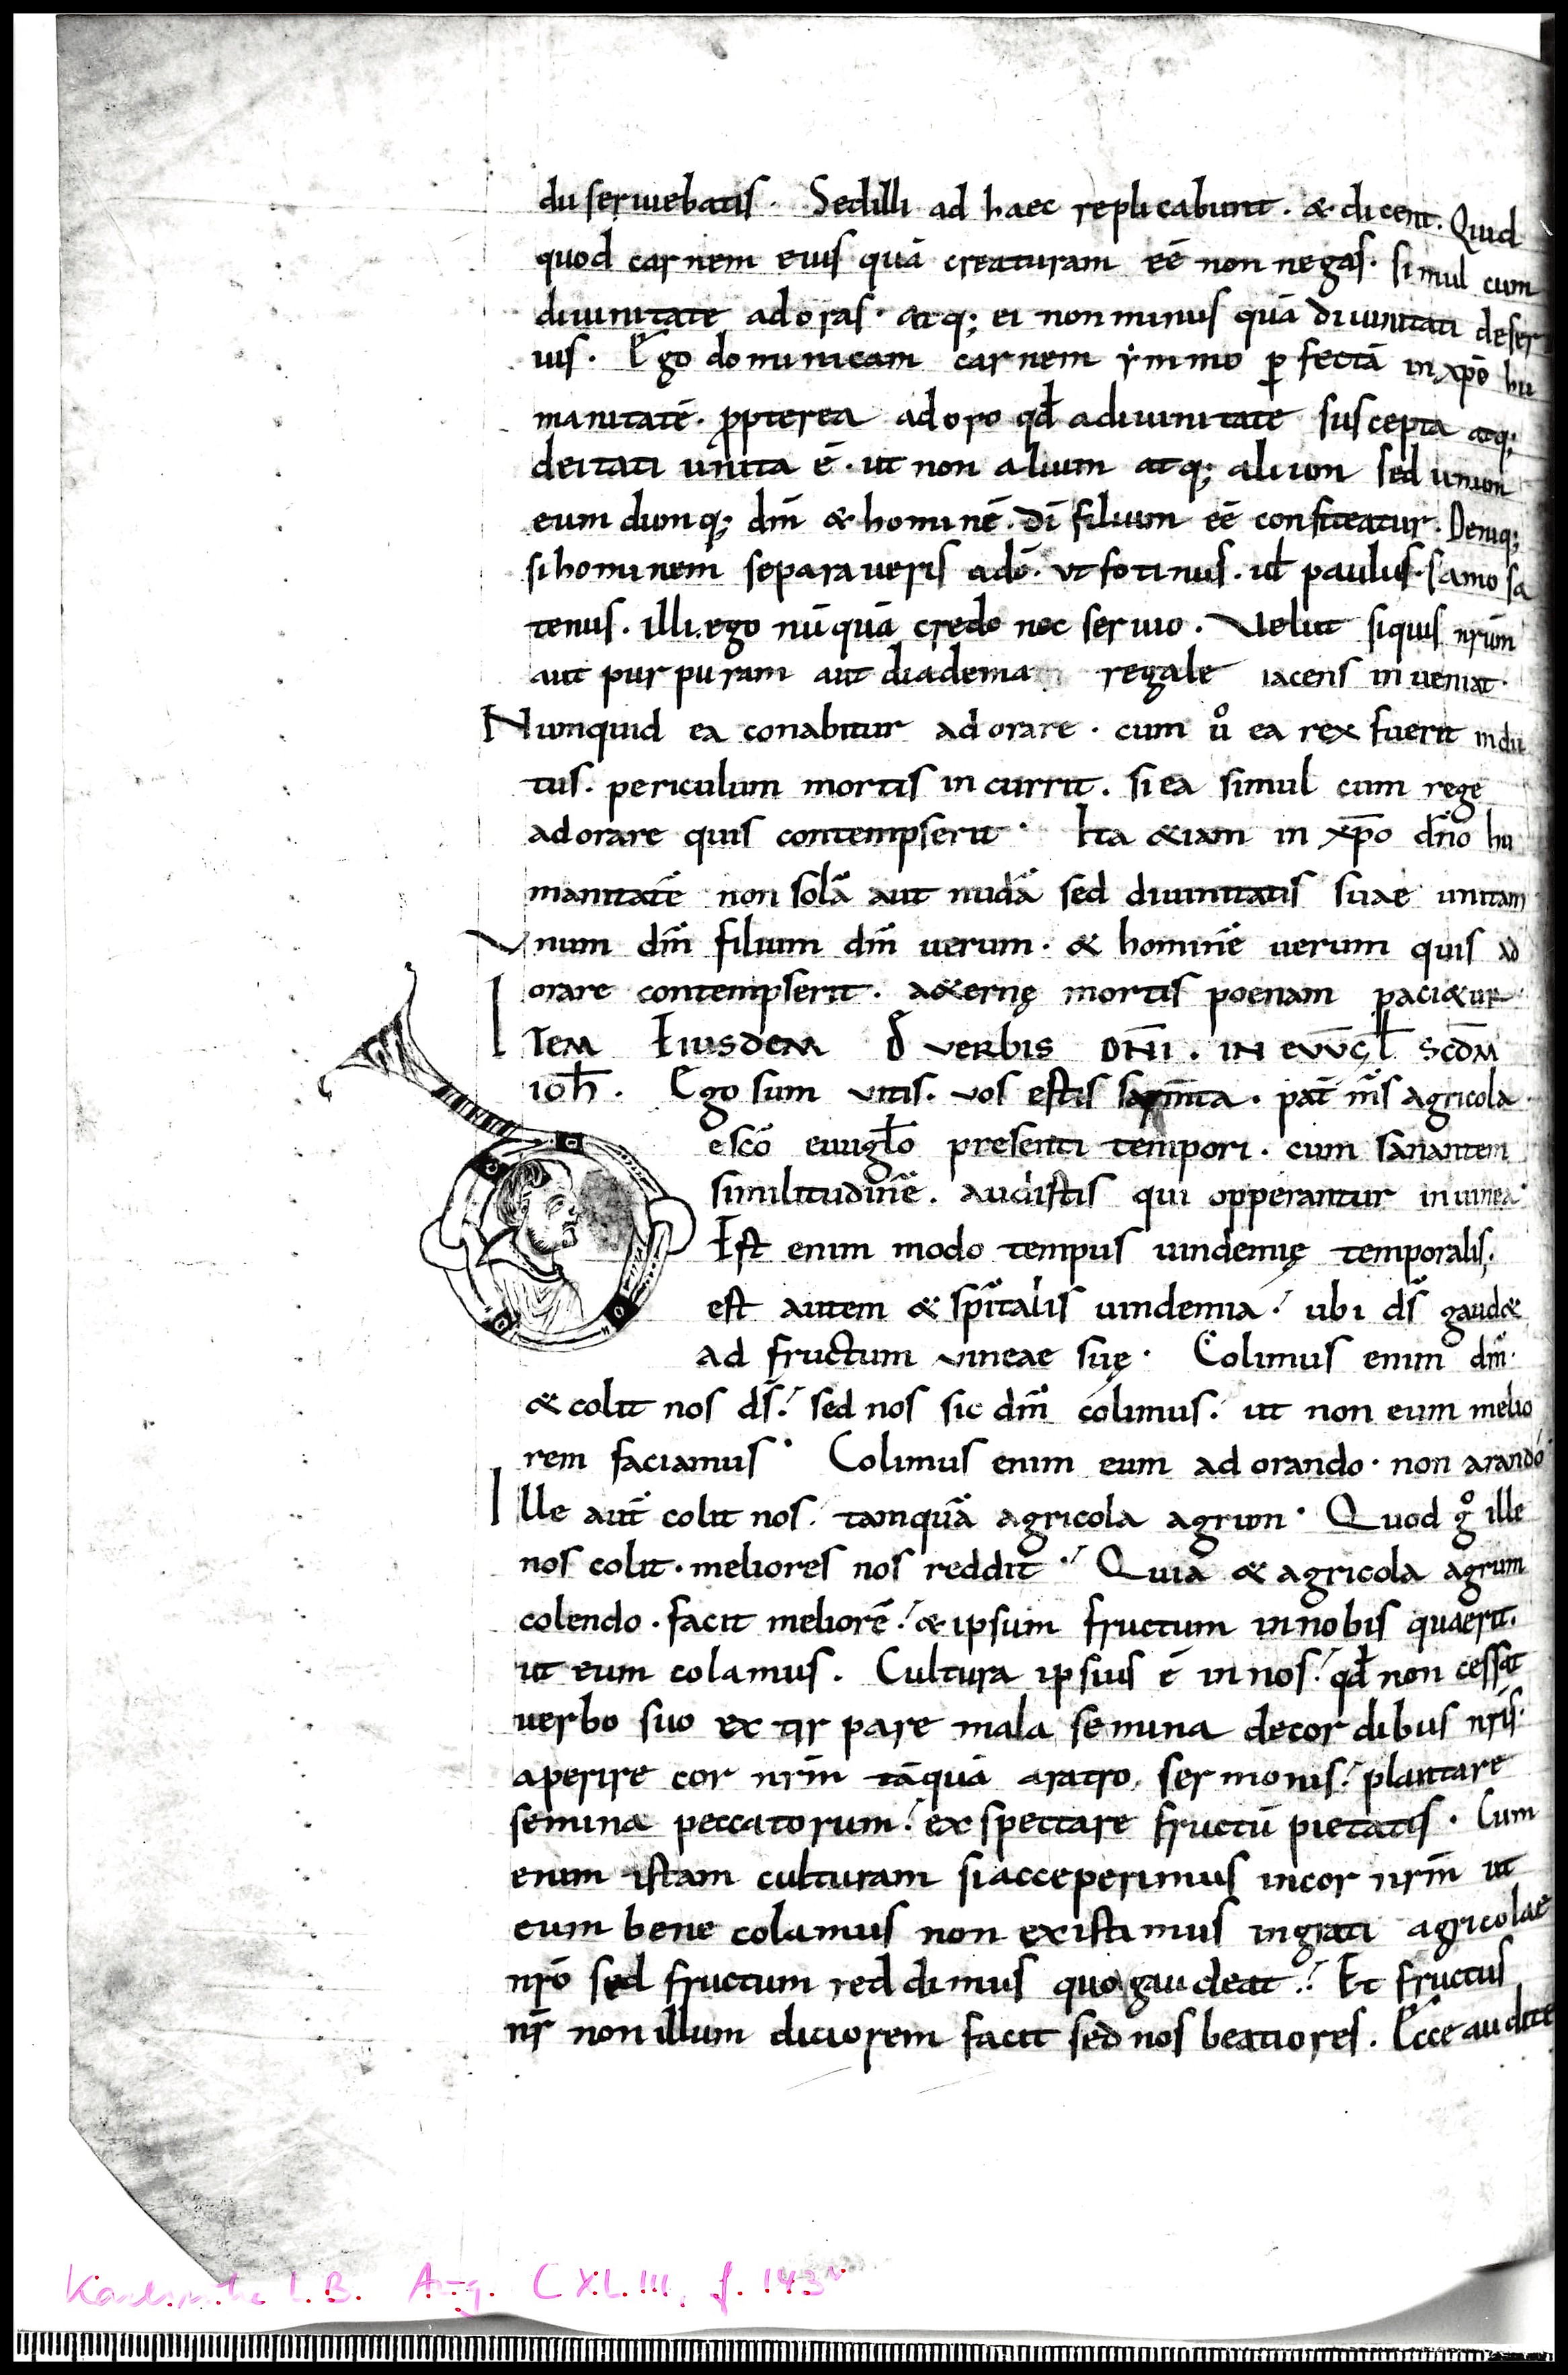 du seruiebatis. Sedilli ad haec replicabunt. & dicent. Quid
quod carnem eius quā creaturam eē non negas. simul cum
diuinitate adoras. atq; ei non minus quā diuinitati deser
uis. Ego dominicam carnem ymmo ꝑfectā in xp̄o hu
manitatē. ꝓpterea adoro qđ adiuinitate suscepta atq;
deitati unita ē. ut non alium atq; alium sed unum
eum dumq; dm̄ & hominē. dī filium eē confiteatur. Deniq;
si hominem separaueris adō. ut fotinus. uł paulus. samosa
tenus. illi ego nūquā credo nec seruio. Velut siquis nrūm
aut purpuram aut diadema regale iacens inueniat.
Numquid ea conabitur adorare. cum ůo ea rex fuerit indu
tus. periculum mortis incurrit. si ea simul cum rege
adorare quis contempserit. Ita &iam in xp̄o dn̄o hu
manitatē non solā aut nudā sed diuinitatis suae unitam
Vnum dm̄ filium dm̄ uerum. & hominē uerum quis ad
orare contempserit. a&ernę mortis poenam paci&ur
ITEM EIUSDEM Đ VERBIS DN̄I. IN EVV̄GꝈ SCD̄M
IOH̄. Ego sum vitis. vos estis sarm̄ta. pat̄ m̄s agricola.
Qescō euuigło presenti tempori. cum sanantem
similitudinē. audistis qui opperantur inuinea.
Est enim modo tempus uindemię temporalis.
est autem & sp̄italis uindemia. ubi ds̄ gaud&
ad fructum vineae suę. Colimus enim dm̄.
& colit nos ds̄. sed nos sic dm̄ colimus. ut non eum melio
rem faciamus. Colimus enim eum adorando. non arandō
Ille aut̄ colit nos. tamquā agricola agrum. Quod gͦ ille
nos colit. meliores nos reddit. Quia & agricola agrum
colendo. facit meliorē. & ipsum fructum innobis quaerit.
ut eum colamus. Cultura ipsius ē in nos. qđ non cessat
uerbo suo extirpare mala semina decordibus nr̄is.
aperire cor nr̄m tāquā aratro sermonis. plantare
semina peccatorum. exspectare fructū pietatis. Cum
enim istam culturam siacceperimus incor nr̄m ut
eum bene colamus non existimus ingrati agricolae
nrō sed fructum reddimus quo gaudeat. Et fructus
nr̄ non illum diciorem facit sed nos beatiores. Ecce audite
Karlsruhe L.B. Aug. CXLIII, f. 143v